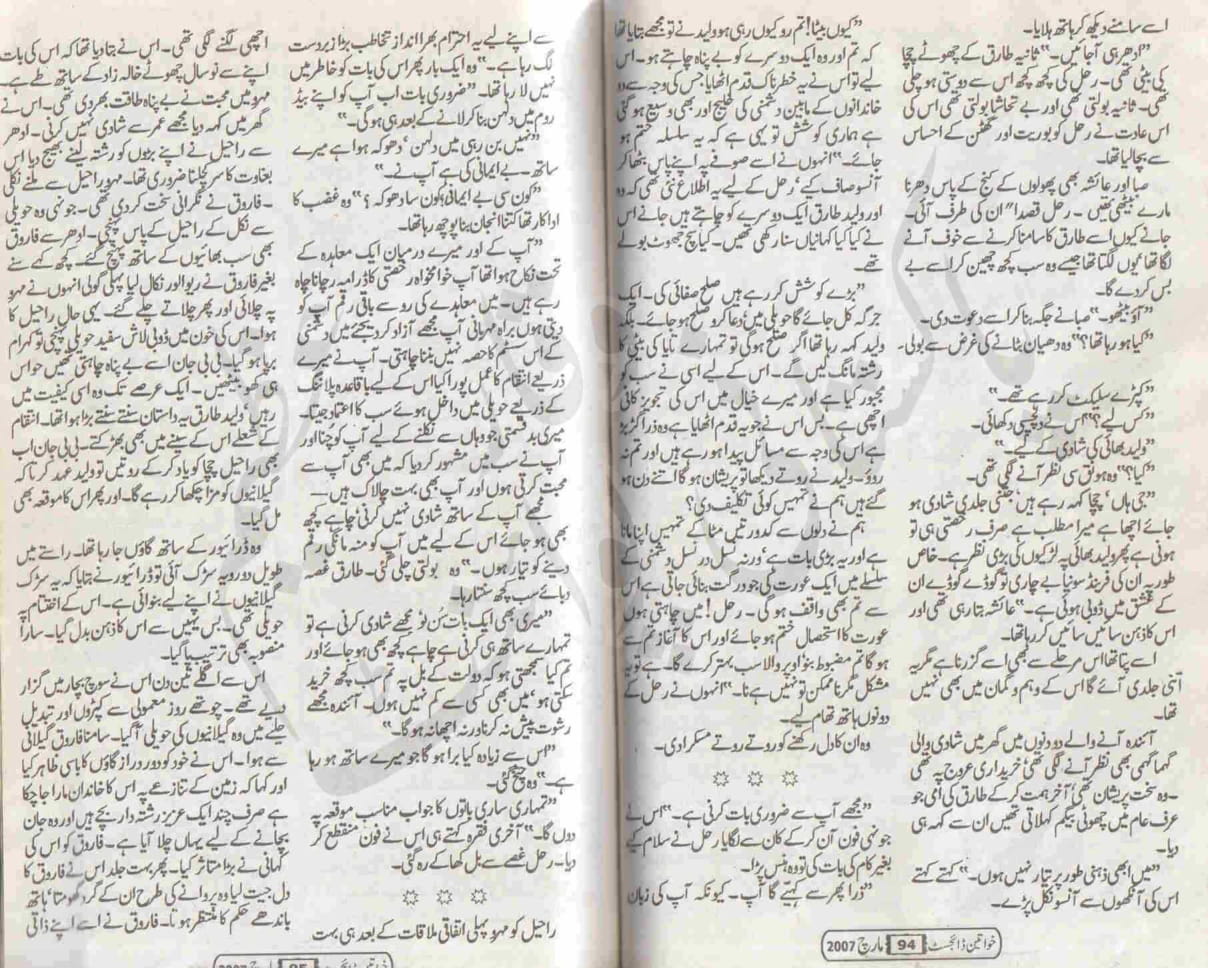 اسے سامنے دیکھ کر ہاتھ ہلایا۔
”ادھر ہی آجائیں۔“ ثانیہ طارق کے چھوٹے چچا
کی بیٹی تھی۔ رحل کی کچھ کچھ اس سے دوستی ہو چلی
تھی۔ ثانیہ بولتی تھی اور بے تحاشا بولتی تھی اس کی
اس عادت نے رحل کو بوریت اور گھٹن کے احساس
سے بچا لیا تھا۔
صبا اور عائشہ بھی پھولوں کے کنج کے پاس دھرنا
مارے بیٹھی تھیں۔ رحل قصداً ان کی طرف آئی۔
جانے کیوں اسے طارق کا سامنا کرنے سے خوف آنے
لگا تھا یوں لگتا تھا جیسے وہ سب کچھ چھین کر اسے بے
بس کر دے گا۔
”آؤ بیٹھو۔“ صبا نے جگہ بنا کر اسے دعوت دی۔
”کیا ہو رہا تھا؟“ وہ دھیان بٹانے کی غرض سے بولی۔
”کپڑے سلیکٹ کر رہے تھے۔“
”کس لیے؟“ اس نے دلچسپی دکھائی۔
”ولید بھائی کی شادی کے لیے۔“
”کیا؟“ وہ ہونق سی نظر آنے لگی تھی۔
”جی ہاں‘ چچا کہہ رہے ہیں‘ جتنی جلدی شادی ہو
جائے اچھا ہے میرا مطلب ہے صرف رخصتی ہی تو
ہونی ہے پھر ولید بھائی پہ لڑکیوں کی بڑی نظر ہے۔ خاص
طور پہ ان کی فرینڈ سونیا بے چاری تو گوڈے گوڈے ان
کے عشق میں ڈوبی ہوئی ہے۔“ عائشہ بتا رہی تھی اور
اس کا ذہن سائیں سائیں کر رہا تھا۔
اسے پتا تھا اس مرحلے سے بھی اسے گزرنا ہے مگر یہ
اتنی جلدی آئے گا اس کے وہم و گمان میں بھی نہیں
تھا۔
آئندہ آنے والے دو دنوں میں گھر میں شادی والی
گہما گہمی بھی نظر آنے لگی تھی‘ خریداری عروج پہ تھی
۔ وہ سخت پریشان تھی‘ آخر ہمت کر کے طارق کی امی جو
عرف عام میں چھوٹی بیگم کہلاتی تھیں ان سے کہہ ہی
دیا۔
”میں ابھی ذہنی طور پر تیار نہیں ہوں۔“ کہتے کہتے
اس کی آنکھوں سے آنسو نکل پڑے۔
”کیوں بیٹا! تم رو کیوں رہی ہو ولید نے تو مجھے بتایا تھا
کہ تم اور وہ ایک دوسرے کو بے پناہ چاہتے ہو۔ اس
لیے تو اس نے یہ خطرناک قدم اٹھایا جس کی وجہ سے دو
خاندانوں کے مابین دشمنی کی خلیج اور بھی وسیع ہو گئی
ہے ہماری کوشش تو یہی ہے کہ یہ سلسلہ ختم ہو
جائے۔“ انہوں نے اسے صوفے پہ اپنے پاس بٹھا کر
آنسو صاف کیے‘ رحل کے لیے یہ اطلاع نئی تھی کہ وہ
اور ولید طارق ایک دوسرے کو چاہتے ہیں جانے اس
نے کیا کیا کہانیاں سنا رکھی تھیں۔ کیا سچ جھوٹ بولے
تھے۔
”بڑے کوشش کر رہے ہیں صلح صفائی کی۔ ایک
جرگہ کل جائے گا حویلی میں‘ دعا کرو صلح ہو جائے۔ بلکہ
ولید کہہ رہا تھا اگر صلح ہو گی تو تمہارے تایا کی بیٹی کا
رشتہ مانگ لیں گے۔ اس کے لیے اسی نے سب کو
مجبور کیا ہے اور میرے خیال میں اس کی تجویز کافی
اچھی ہے۔ بس اس نے جو یہ قدم اٹھایا ہے وہ ذرا گڑبڑ
ہے اس کی وجہ سے مسائل پیدا ہو رہے ہیں اور تم نہ
روؤ۔ ولید نے روتے دیکھا تو پریشان ہو گا اتنے دن ہو
گئے ہیں ہم نے تمہیں کوئی تکلیف دی؟
ہم نے دلوں سے کدورتیں مٹا کے تمہیں اپنا مانا
ہے اور یہ بڑی بات ہے‘ ورنہ نسل در نسل دشمنی کے
سلسلے میں ایک عورت کی جو درگت بنائی جاتی ہے اس
سے تم بھی واقف ہو گی۔ رحل! میں چاہتی ہوں
عورت کا استحصال ختم ہو جائے اور اس کا آغاز تم سے
ہو گا تم مضبوط بنو اوپر والا سب بہتر کرے گا۔ ہے تو یہ
مشکل مگر ناممکن تو نہیں ہے نا۔“ انہوں نے رحل کے
دونوں ہاتھ تھام لیے۔
وہ ان کا دل رکھنے کو روتے روتے مسکرا دی۔
”مجھے آپ سے ضروری بات کرنی ہے۔“ اس نے
جونہی فون آن کر کے کان سے لگایا رحل نے سلام کے
بغیر کام کی بات کی تو وہ ہنس پڑا۔
”ذرا پھر سے کہیے گا آپ۔ کیونکہ آپ کی زبان
خواتین ڈائجسٹ 94 مارچ 2007
سے اپنے لیے یہ احترام بھرا انداز تخاطب بڑا زبردست
لگ رہا ہے۔“ وہ ایک بار پھر اس کی بات کو خاطر میں
نہیں لا رہا تھا۔ ”ضروری بات اب آپ کو اپنے بیڈ
روم میں دلہن بنا کر لانے کے بعد ہی ہو گی۔“
”نہیں بن رہی میں دلہن‘ دھوکہ ہوا ہے میرے
ساتھ۔ بے ایمانی کی ہے آپ نے۔“
”کون سی بے ایمانی‘ کون سا دھوکہ؟“ وہ غضب کا
اداکار تھا کتنا انجان بنا پوچھ رہا تھا۔
”آپ کے اور میرے درمیان ایک معاہدہ کے
تحت نکاح ہوا تھا آپ خوامخواہ رخصتی کا ڈرامہ رچانا چاہ
رہے ہیں۔ میں معاہدے کی رو سے باقی رقم آپ کو
دیتی ہوں براہ مہربانی آپ مجھے آزاد کر دیجئے میں دشمنی
کے اس سسٹم کا حصہ نہیں بننا چاہتی۔ آپ نے میرے
ذریعے انتقام کا عمل پورا کیا اس کے لیے باقاعدہ پلاننگ
کے ذریعے حویلی میں داخل ہوئے سب کا اعتماد جیتا۔
میری بد قسمتی جو وہاں سے نکلنے کے لیے آپ کو چنا اور
آپ نے سب میں مشہور کر دیا کہ میں بھی آپ سے
محبت کرتی ہوں اور آپ بھی بہت چالاک ہیں —
مجھے آپ کے ساتھ شادی نہیں کرنی‘ چاہے کچھ
بھی ہو جائے اس کے لیے میں آپ کو منہ مانگی رقم
دینے کو تیار ہوں۔“ وہ بولتی چلی گئی۔ طارق غصہ
دبائے سب کچھ سنتا رہا۔
”میری بھی ایک بات سُن لو‘ مجھے شادی کرنی ہے تو
تمہارے ساتھ ہی کرنی ہے چاہے کچھ بھی ہو جائے اور
تم کیا سمجھتی ہو کہ دولت کے بل پہ تم سب کچھ خرید
سکتی ہو‘ میں بھی کسی سے کم نہیں ہوں۔ آئندہ مجھے
رشوت پیش نہ کرنا ورنہ اچھا نہ ہو گا۔“
”اس سے زیادہ کیا برا ہو گا جو میرے ساتھ ہو رہا
ہے۔“ وہ چیخ گئی۔
”تمہاری ساری باتوں کا جواب مناسب موقعہ پہ
دوں گا۔“ آخری فقرہ کہتے ہی اس نے فون منقطع کر
دیا۔ رحل غصے سے بل کھا کے رہ گئی۔
راحیل کو مہرو پہلی اتفاقی ملاقات کے بعد ہی بہت
اچھی لگنے لگی تھی۔ اس نے بتا دیا تھا کہ اس کی بات
اپنے سے نو سال چھوٹے خالہ زاد کے ساتھ طے ہے۔
مہرو میں محبت نے بے پناہ طاقت بھر دی تھی۔ اس نے
گھر میں کہہ دیا مجھے عمر سے شادی نہیں کرنی۔ ادھر
سے راحیل نے اپنے بڑوں کو رشتہ لینے بھیج دیا اس
بغاوت کا سر کچلنا ضروری تھا۔ مہرو راحیل سے ملنے نکلی
۔ فاروق نے نگرانی سخت کر دی تھی۔ جونہی وہ حویلی
سے نکل کے راحیل کے پاس پہنچی۔ ادھر سے فاروق
بھی سب بھائیوں کے ساتھ پہنچ گئے۔ کچھ کہے سنے
بغیر فاروق نے ریوالور نکال لیا پہلی گولی انہوں نے مہرو
پہ چلائی اور پھر چلاتے چلے گئے۔ یہی حال راحیل کا
ہوا۔ اس کی خون میں ڈوبی لاش سفید حویلی پہنچی تو کہرام
برپا ہو گیا۔ بی بی جان اسے بے پناہ چاہتی تھیں حواس
ہی کھو بیٹھیں۔ ایک عرصے تک وہ اسی کیفیت میں
رہیں‘ ولید طارق یہ داستان سنتے سنتے بڑا ہوا تھا۔ انتقام
کے شعلے اس کے سینے میں بھی بھڑکتے۔ بی بی جان اب
بھی راحیل چچا کو یاد کر کے روتیں تو ولید عہد کرتا کہ
گیلانیوں کو مزا چکھا کر رہے گا۔ اور پھر اس کا موقعہ بھی
مل گیا۔
وہ ڈرائیور کے ساتھ گاؤں جا رہا تھا۔ راستے میں
طویل دو رویہ سڑک آئی تو ڈرائیور نے بتایا کہ یہ سڑک
گیلانیوں نے اپنے لیے بنوائی ہے۔ اس کے اختتام پہ
حویلی تھی۔ بس یہیں سے اس کا ذہن بدل گیا۔ سارا
منصوبہ بھی ترتیب پا گیا۔
اس سے اگلے تین دن اس نے سوچ بچار میں گزار
دیے تھے۔ چوتھے روز معمولی سے کپڑوں اور تبدیل
حلیے میں وہ گیلانیوں کی حویلی آ گیا۔ سامنا فاروق گیلانی
سے ہوا۔ اس نے خود کو دور دراز گاؤں کا باسی ظاہر کیا
اور کہا کہ زمین کے تنازعے پہ اس کا خاندان مارا جا چکا
ہے صرف چند ایک عزیز رشتہ دار بچے ہیں اور وہ جان
بچانے کے لیے یہاں چلا آیا ہے۔ فاروق کو اس کی
کہانی نے بڑا متاثر کیا۔ پھر بہت جلد اس نے فاروق کا
دل جیت لیا وہ پروانے کی طرح ان کے گرد گھومتا‘ ہاتھ
باندھے حکم کا منتظر ہوتا۔ فاروق نے اسے اپنے ذاتی